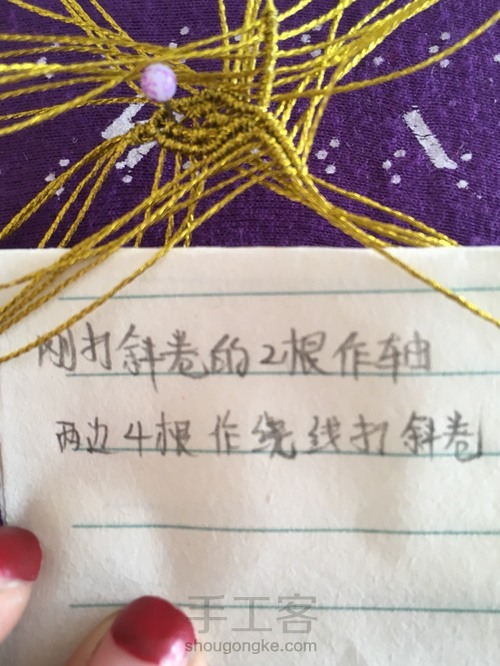 刚打斜卷的2根作轴
两边4根作绕线打斜卷
手工客
shougongke.com